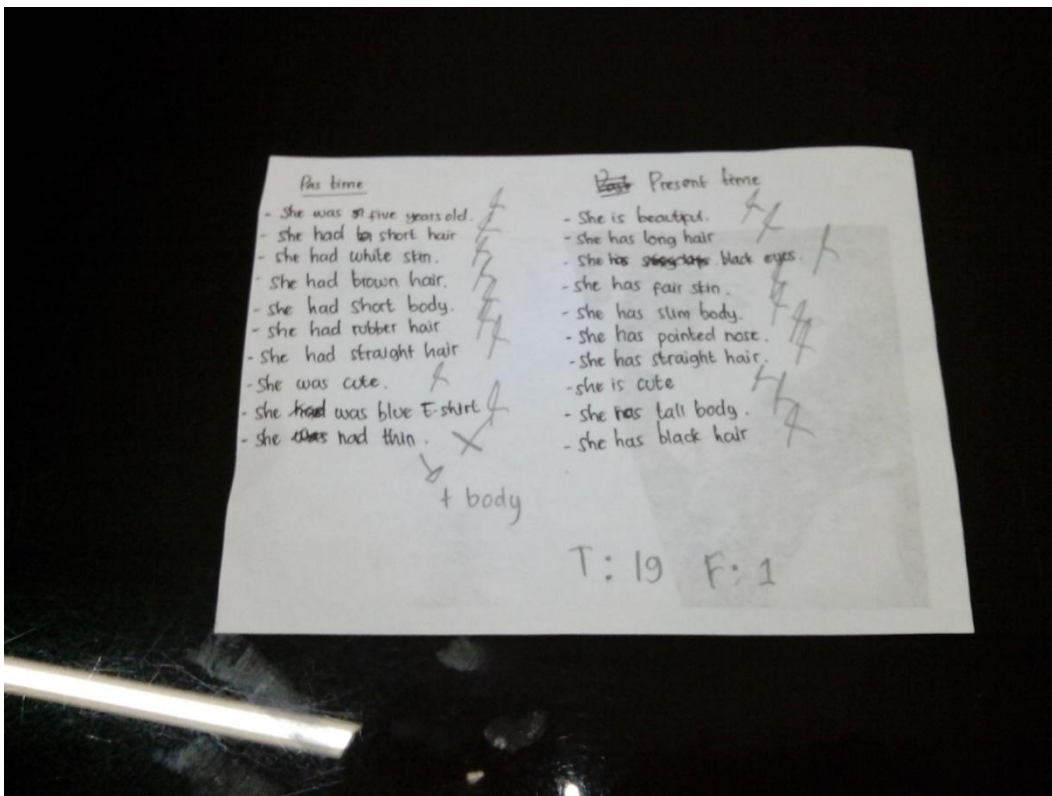 Pas time
- She was five years old.
- She had short hair
- She had white skin.
- She had brown hair.
- She had short body.
- She had rubber hair
- She had straight hair
- She was cute.
- She was blue T-shirt
- She had thin.
+ body
Present time
- She is beautiful.
- She has long hair
- She has black eyes.
- She has fair skin.
- She has slim body.
- She has pointed nose.
- She has straight hair.
- she is cute
- she has tall body.
- She has black hair
T: 19 F: 1